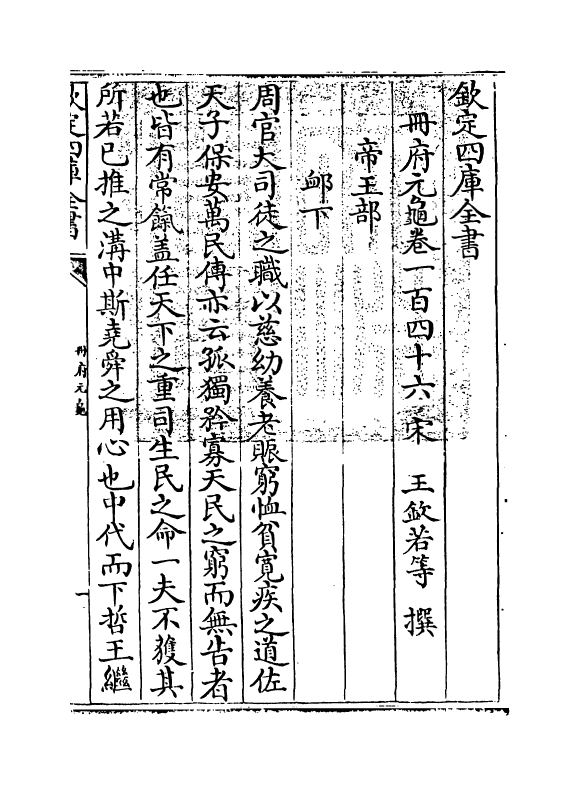 欽定四庫全書
冊府元龜卷一百四十六 宋 王欽若等 撰
帝王部
䘏下
周官大司徒之職以慈幼養老賑窮恤貧寬疾之道佐
天子保安萬民傳亦云孤獨矜寡天民之窮而無告者
也皆有常餼盖任天下之重司生民之命一夫不獲其
所若已推之溝中斯堯舜之用心也中代而下哲王繼
欽定四庫全書
冊府元龜
一